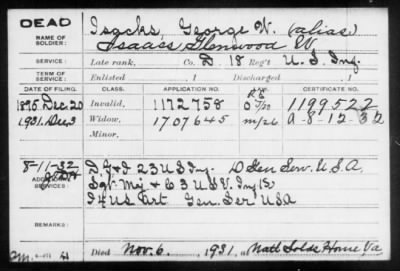 DEAD
NAME OF SOLDIER: Isacks, George W. (alias)
Isaacs Glenwood W
SERVICE: Late rank, Co. D, 18 Reg't U.S. Inf.
TERM OF SERVICE: Enlisted , 1 Discharged , 1
DATE OF FILING. CLASS. APPLICATION NO. CERTIFICATE NO.
1895 Dec. 20 Invalid, 1172758 1199522
1931. Dec 3 Widow, 1707645 A-8-12-32
Minor,
8-11-32 D, G & I 23 U.S. Inf. D Gen Serv. U.S.A.
ADDITIONAL SERVICES: Sgt Mj & C 3 U.S.V. Inf
U.S. Art. Gen. Ser USA
REMARKS:
Died Nov. 6, 1931, at Natl Solds Home Va